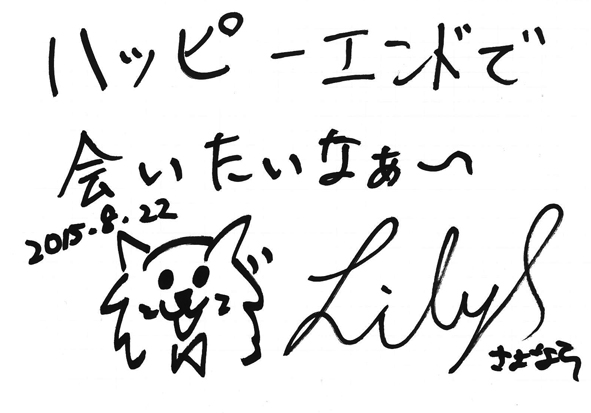 ハッピーエンドで
会いたいなぁ～
2015.8.22
LilyS